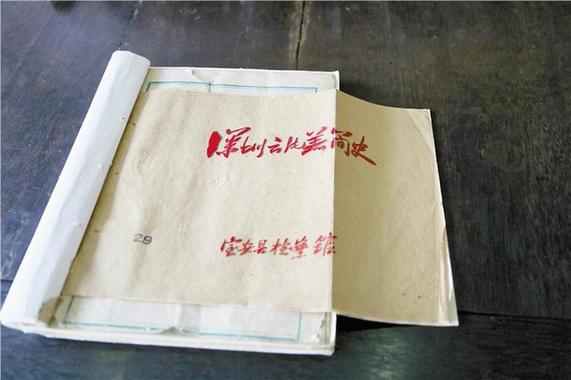 深圳云片羔简史
29
宝安县档案馆